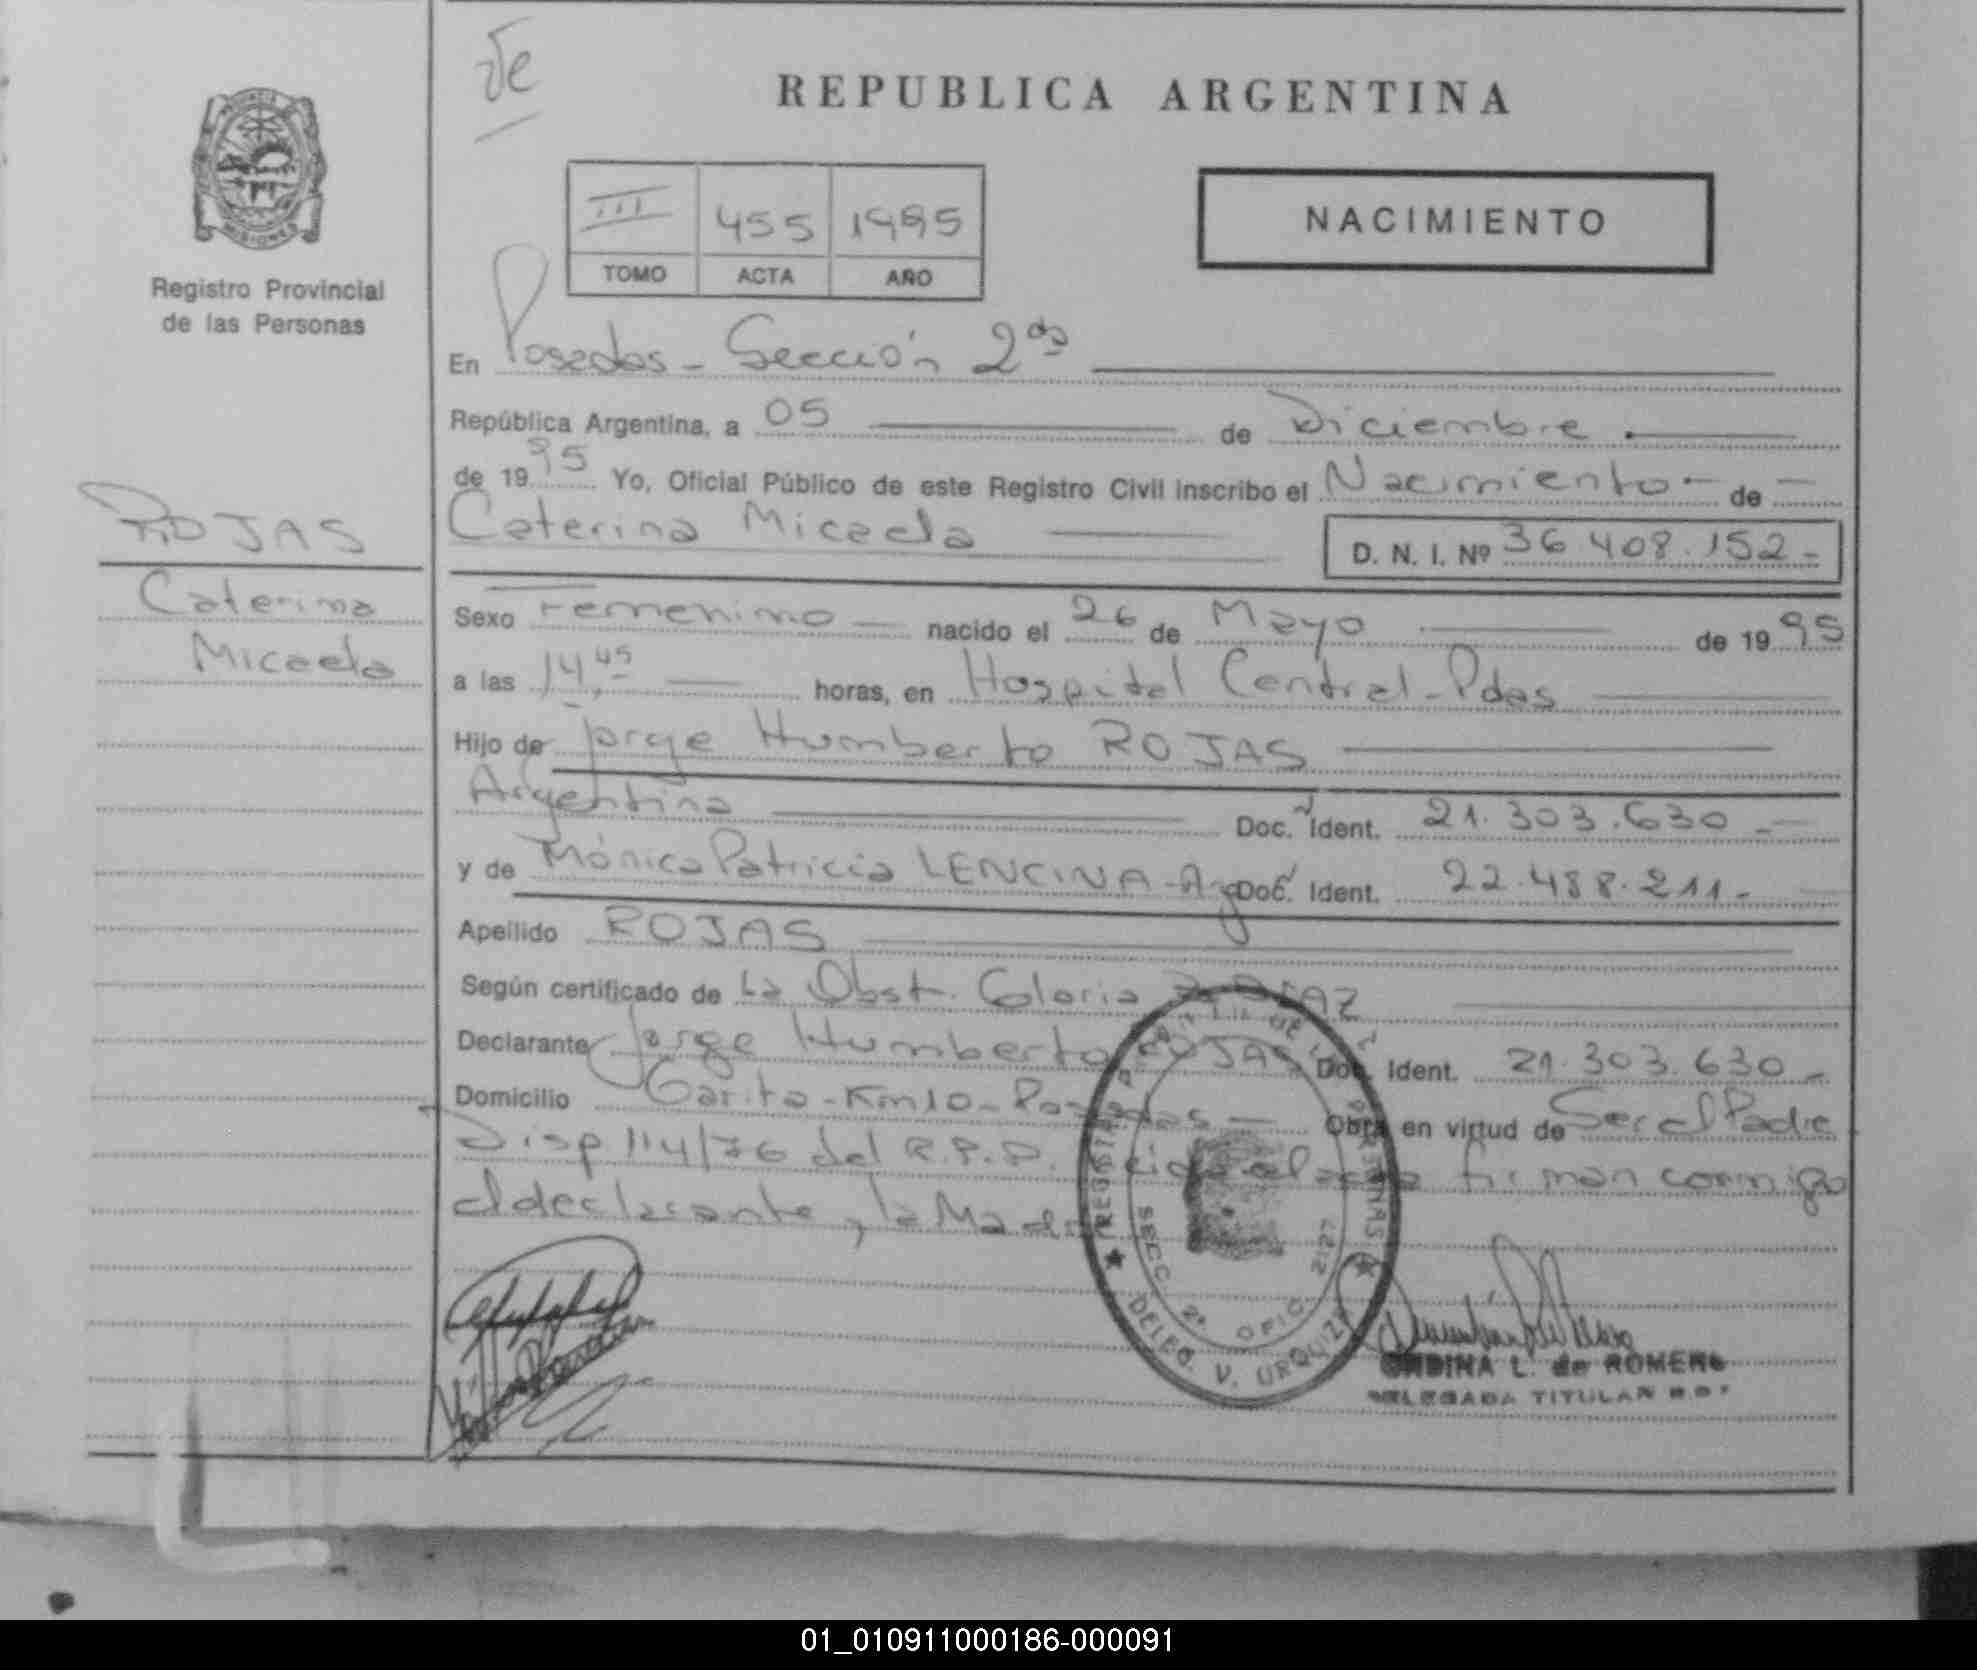 de
REPUBLICA ARGENTINA
PROVINCIA
MISIONES
Registro Provincial
de las Personas
III 455 1995
TOMO ACTA AÑO
NACIMIENTO
En Posadas - Sección 2da
República Argentina, a 05 de Diciembre
de 1995 Yo, Oficial Público de este Registro Civil inscribo el Nacimiento - de -
ROJAS
Caterina Micaela
D. N. I. Nº 36.408.152-
Caterina
Micaela
Sexo Femenino nacido el 26 de Mayo de 1995
a las 14,45 horas, en Hospital Central - Pdas
Hijo de Jorge Humberto ROJAS
Argentina Doc. Ident. 21.303.630 -
y de Mónica Patricia LENCINA - Arg Doc. Ident. 22.488.211-
Apellido ROJAS
Según certificado de La Obst. Gloria DIAZ
Declarante Jorge Humberto ROJAS Doc. Ident. 21.303.630 -
Domicilio Garita - Km 10 - Posadas - Obra en virtud de Ser el Padre
Disp. 114/76 del R.P.P. firman conmigo
el declarante, la Madre
SECC. 2ª OFIC. 2127
DELEG. V. URQUIZA
ONDINA L. de ROMERO
DELEGADA TITULAR
01_010911000186-000091